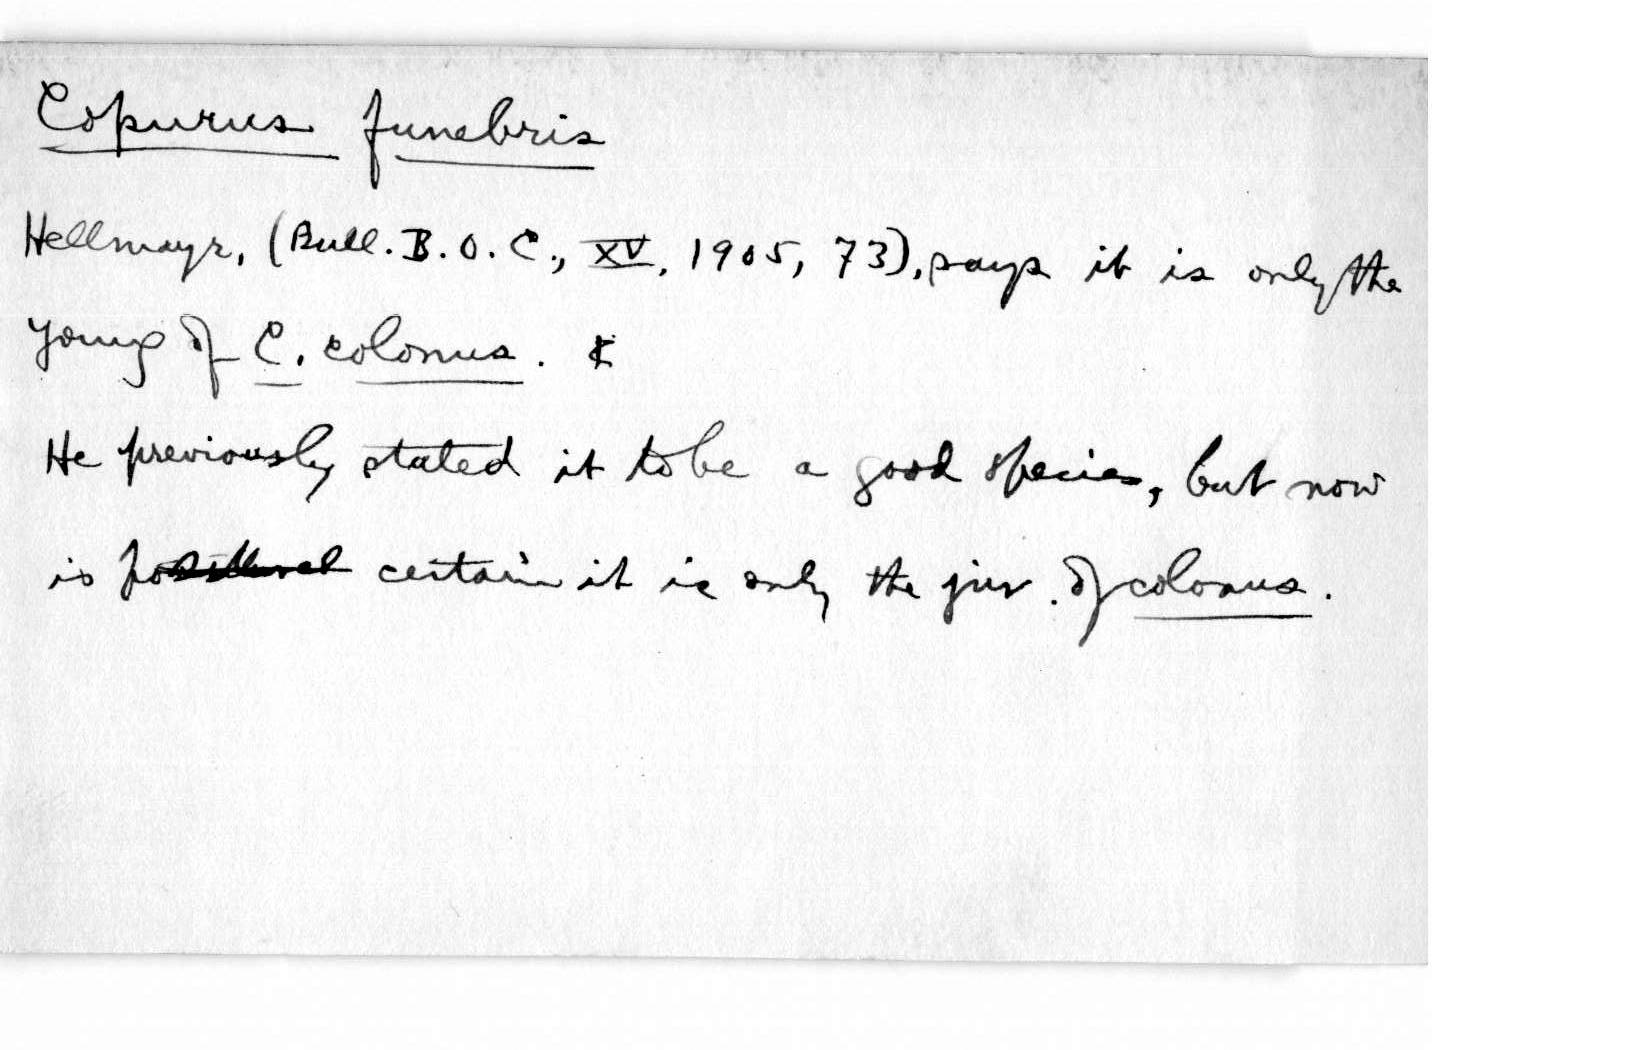 Copurus funebris
Hellmayr, (Bull. B.O.C., XV, 1905, 73), says it is only the
young of C. colonus.
He previously stated it to be a good species, but now
is certain it is only the juv. of colonus.